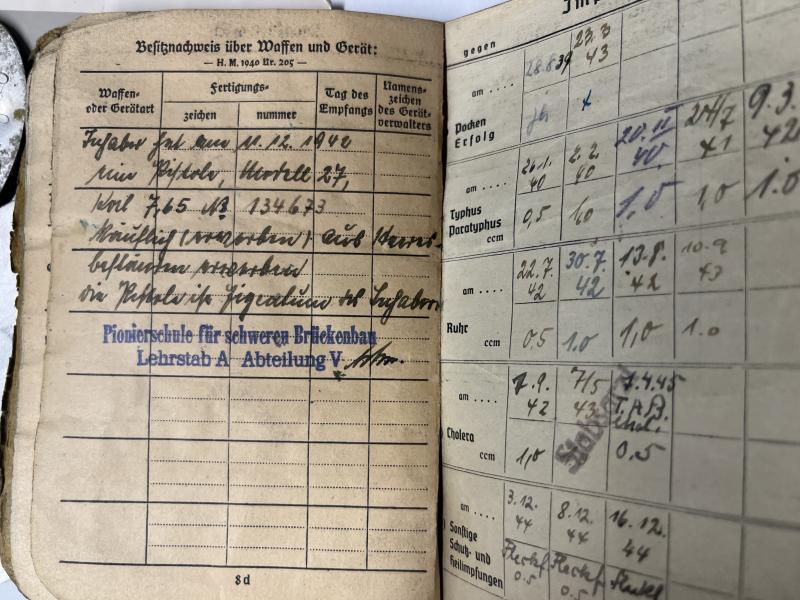 Besitznachweis über Waffen und Gerät:
— H. M. 1940 Nr. 205 —
Waffen- oder Geräteart
Fertigungs-
zeichen
nummer
Tag des Empfangs
Namens-zeichen des Gerät-verwalters
Inhaber hat am 11.12.1942
eine Pistole, Modell 27,
Kal 7,65 No 134673
käuflich (erworben) aus Heeres-
beständen erworben
die Pistole ist Eigentum des Inhabers
Pionierschule für schweren Brückenbau
Lehrstab A Abteilung V
8d
gegen
am .... 28.8.39 23.3 43
Pocken
Erfolg ja +
am .... 26.1. 40 2.2. 40 20.II 40. 24/7 41 9.3. 42
Typhus
Paratyphus
ccm 0,5 1,0 1,0 1,0 1.0
am .... 22.7. 42 30.7. 42 13.8. 42 10.9 43
Ruhr
ccm 0.5 1.0 1,0 1.0
am .... 7.9. 42 7/5 43 7.4.45
Cholera
ccm 1,0 0.5
am .... 3.12. 44 8.12. 44 16.12. 44
Sonstige
Schutz- und
Heilimpfungen
Fleckf. Fleckf. Fleckf
0.5 0.5